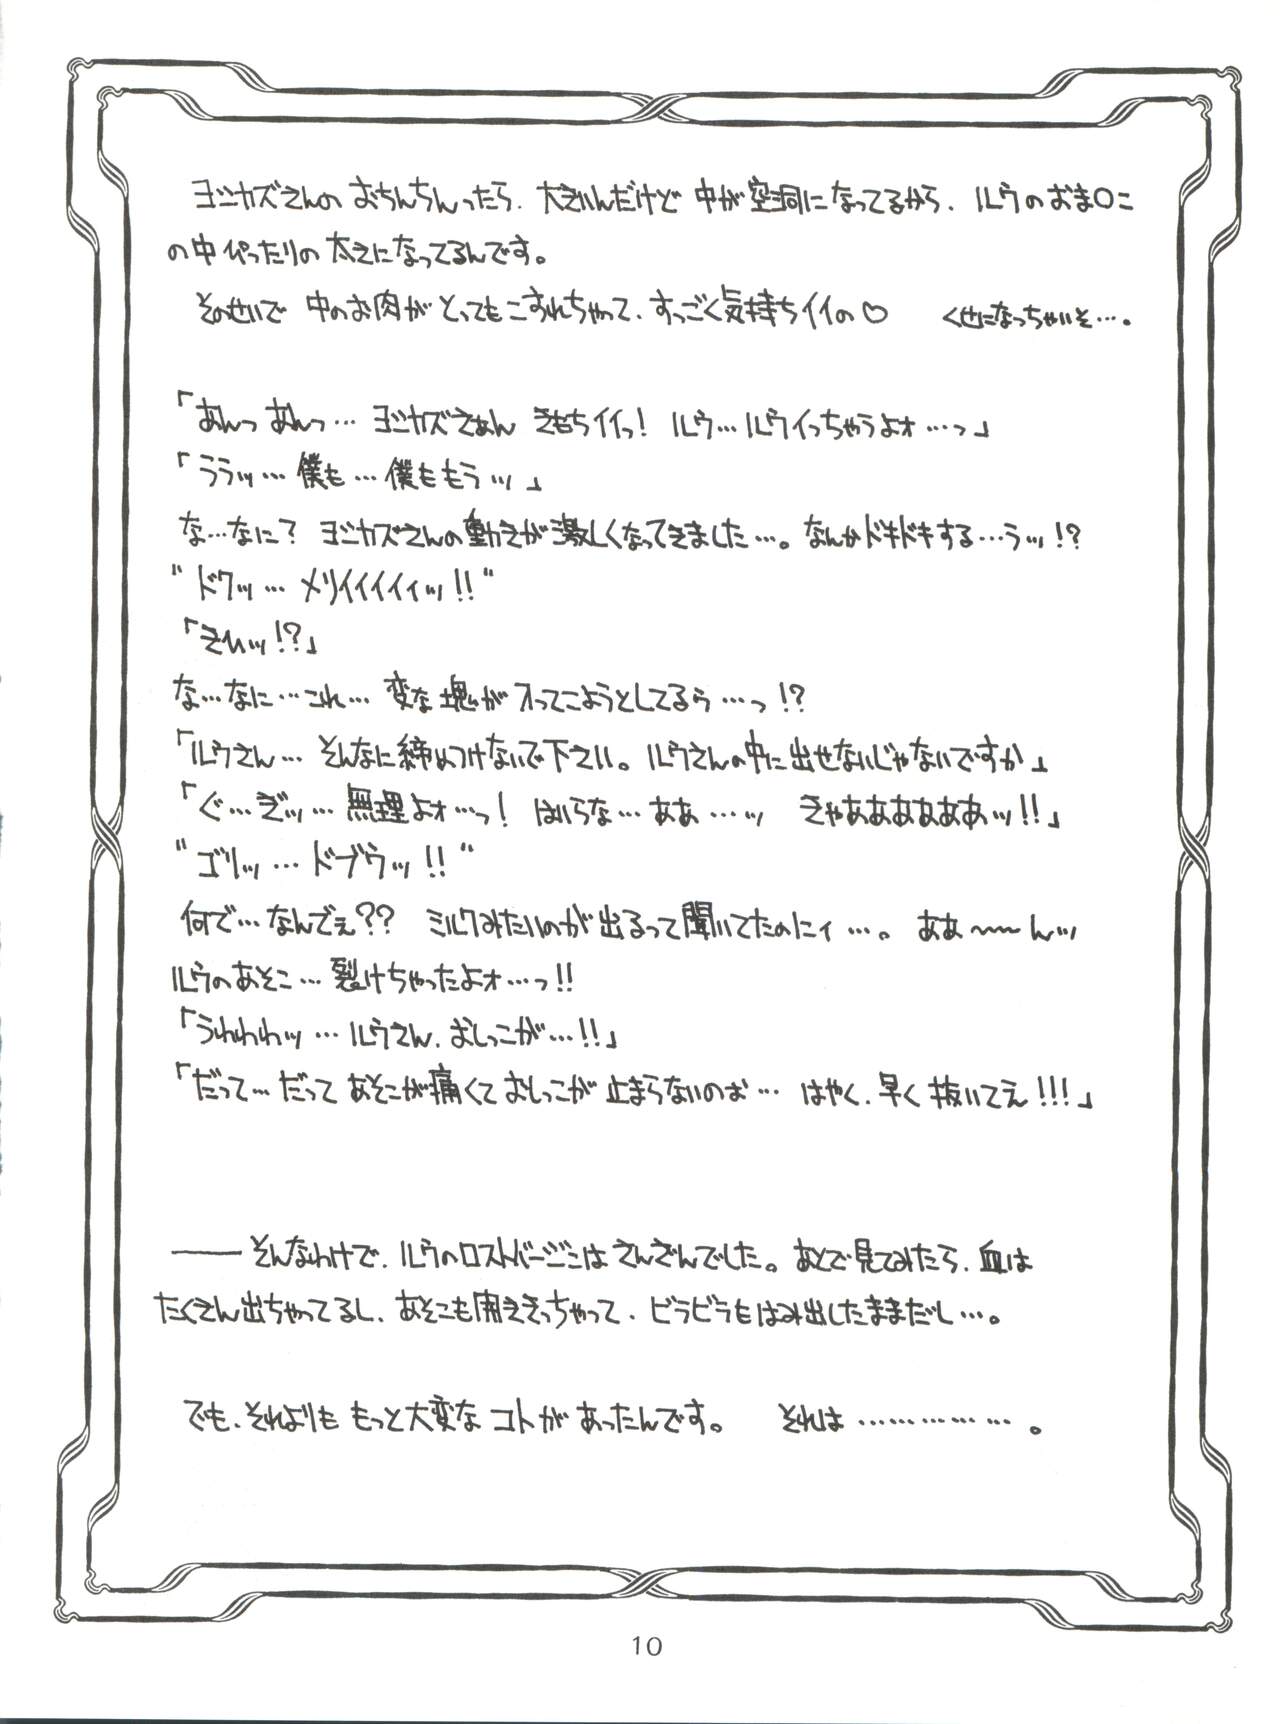 ヨシカズさんの おちんちんったら、大きいんだけど 中が空洞になってるから、ルウのおま〇こ
の中ぴったりの 太さになってるんです。
そのせいで 中のお肉が とってもこすれちゃって、すっごく気持ちイイの♡ くせになっちゃいそ…。
「あんっ あんっ… ヨシカズさぁん きもちイイっ! ルウ…ルウイっちゃうよォ…っ」
「ううッ… 僕も… 僕ももうッ」
な…なに? ヨシカズさんの動きが激しくなってきました…。なんかドキドキする…うッ!?
"ドクッ… メリイイイイィッ!!"
「きひッ!?」
な…なに…これ… 変な塊が 入ってこようとしてるぅ…っ!?
「ルウさん… そんなに締めつけないで下さい。ルウさんの中に出せないじゃないですか」
「ぐ…ぎッ… 無理よォ…っ! はいらな… ああ…ッ きゃああああああッ!!」
"ゴリッ… ドブウッ!!"
何で…なんでぇ?? ミルクみたいのが出るって聞いてたのにィ…。ああ〜〜んッ
ルウのあそこ… 裂けちゃったよォ…っ!!
「うわわわッ… ルウさん、おしっこが…!!」
「だって… だって あそこが痛くて おしっこが 止まらないのぉ… はやく、早く抜いてえ!!!」
――そんなわけで、ルウのロストバージンは さんざんでした。あとで見てみたら、血は
たくさん出ちゃってるし、あそこも開ききっちゃって、ビラビラもはみ出したままだし…。
でも、それよりも もっと大変な コトが あったんです。 それは……………。
10